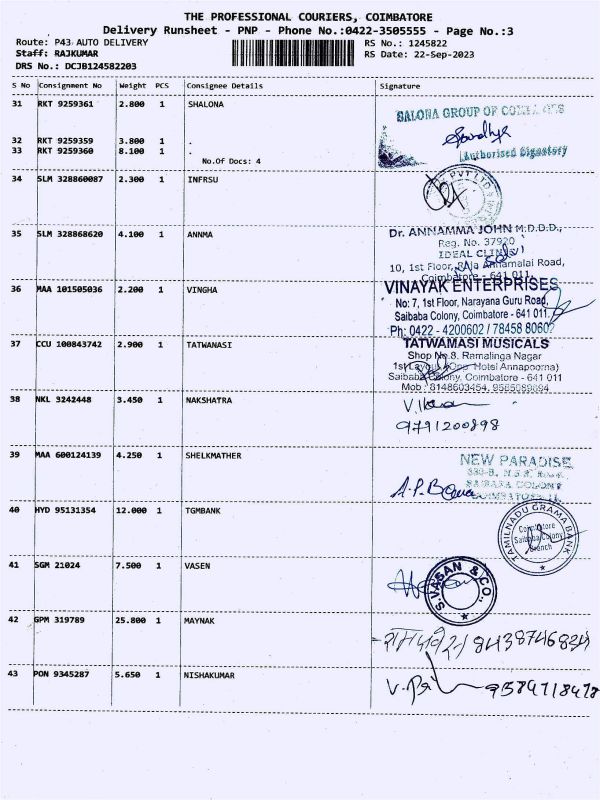 THE PROFESSIONAL COURIERS, COIMBATORE
Delivery Runsheet - PNP - Phone No.:0422-3505555 - Page No.:3
Route: P43 AUTO DELIVERY RS No.: 1245822
Staff: RAJKUMAR RS Date: 22-Sep-2023
DRS No.: DCJB124582203
S No Consignment No Weight PCS Consignee Details Signature
31 RKT 9259361 2.800 1 SHALONA
SALONA GROUP OF
Authorised Signatory
32 RKT 9259359 3.800 1 .
33 RKT 9259360 8.100 1 .
No.Of Docs: 4
34 SLM 328860087 2.300 1 INFRSU
PVT LTD
35 SLM 328868620 4.100 1 ANNMA
Dr. ANNAMMA JOHN M.D.D.D.,
Reg. No. 37920
IDEAL CLINIC
10, 1st Floor, Raja Annamalai Road,
Coimbatore - 641 011.
36 MAA 101505036 2.200 1 VINGHA
VINAYAK ENTERPRISES
No: 7, 1st Floor, Narayana Guru Road,
Saibaba Colony, Coimbatore - 641 011.
Ph: 0422 - 4200602 / 78458 80602
37 CCU 100843742 2.900 1 TATWANASI
TATWAMASI MUSICALS
Shop No.8. Ramalinga Nagar
1st Layout (Opp. Hotel Annapoorna)
Saibaba Colony, Coimbatore - 641 011
Mob : 8148603454, 9585089694
38 NKL 3242448 3.450 1 NAKSHATRA
9791200898
39 MAA 600124139 4.250 1 SHELKMATHER
NEW PARADISE
SAIBABA COLONY
40 HYD 95131354 12.000 1 TGMBANK
TAMILNADU GRAMA BANK
Coimbatore
Saibaba Colony
Branch
41 SGM 21024 7.500 1 VASEN
S.VASAN & CO.,
42 GPM 319789 25.800 1 MAYNAK
8438746834
43 PON 9345287 5.650 1 NISHAKUMAR
9589718478